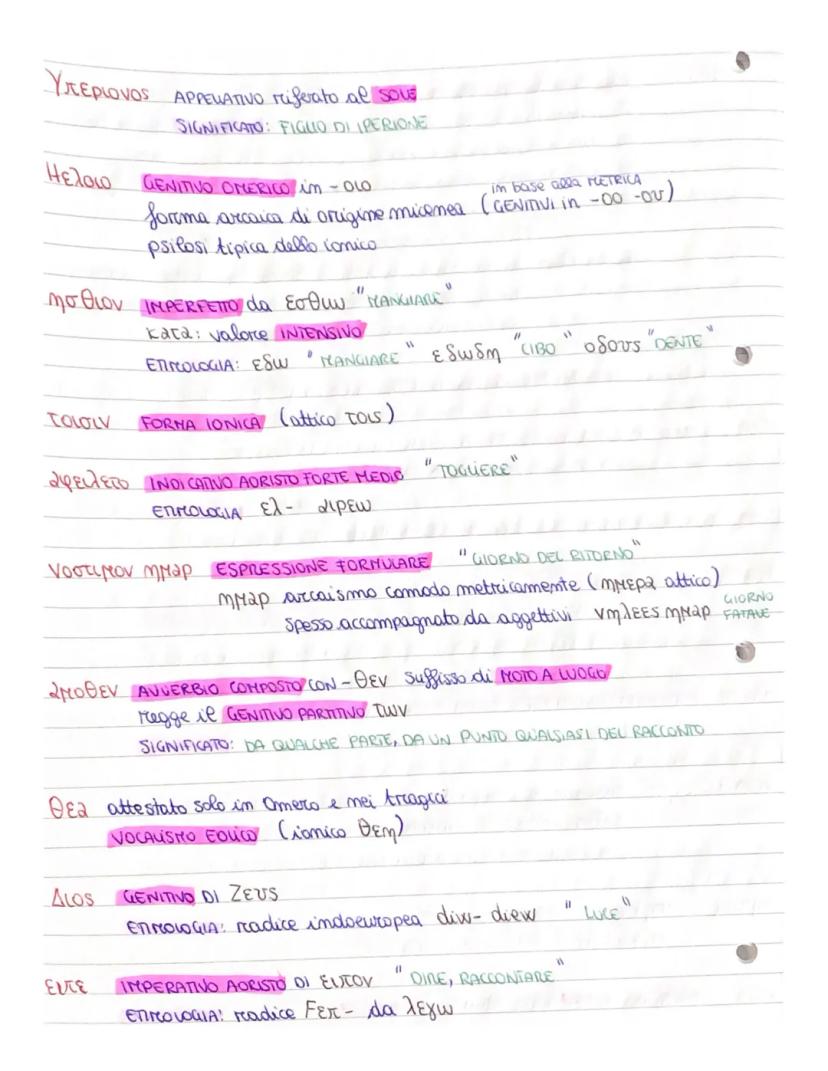 Υπεριονος APPELLATIVO riferato al SOLE
SIGNIFICATO: FIGLIO DI IPERIONE
Ηελοιο GENITIVO OMERICO in -οιο
in base alla METRICA
forma arcaica di origine micenea (GENITIVI in -οο -ου)
psilosi tipica dello ionico
ησθιον IMPERFETTO da εσθιω "MANGIARE"
κατα: valore INTENSIVO
ETIMOLOGIA: εδω "MANGIARE" εδωδη "CIBO" οδους "DENTE"
τοισιν FORMA IONICA (attico τοις)
αφειλετο INDICATIVO AORISTO FORTE MEDIO "TOGLIERE"
ETIMOLOGIA ελ- αιρεω
νοστιμον ημαρ ESPRESSIONE FORMULARE "GIORNO DEL RITORNO"
ημαρ arcaismo comodo metricamente (ημερα attico)
spesso accompagnato da aggettivi νηλεες ημαρ GIORNO FATALE
αμοθεν AVVERBIO COMPOSTO CON -θεν suffisso di MOTO A LUOGO
regge il GENITIVO PARTITIVO των
SIGNIFICATO: DA QUALCHE PARTE, DA UN PUNTO QUALSIASI DEL RACCONTO
θεα attestato solo in Omero e nei tragici
VOCALISMO EOLICO (ionico θεη)
Διος GENITIVO DI Ζευς
ETIMOLOGIA: radice indoeuropea diw- diew "LUCE"
ειπε IMPERATIVO AORISTO DI ειπον "DIRE, RACCONTARE"
ETIMOLOGIA: radice Fεπ- da λεγω